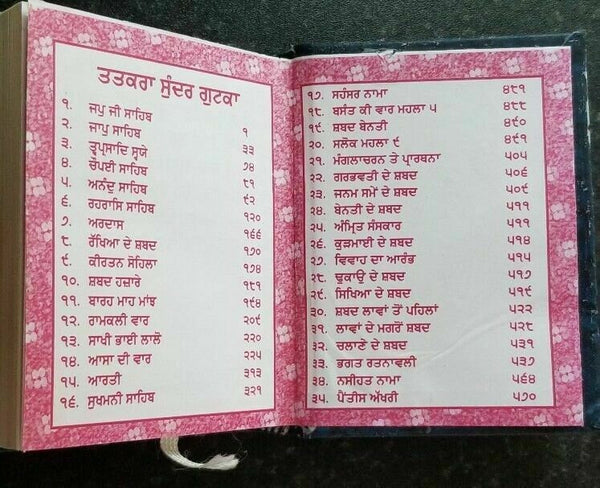 ਤਤਕਰਾ ਸੁੰਦਰ ਗੁਟਕਾ
੧. ਜਪੁ ਜੀ ਸਾਹਿਬ ੧
੨. ਜਾਪੁ ਸਾਹਿਬ ੩੩
੩. ਤ੍ਵਪ੍ਰਸਾਦਿ ਸ੍ਵਯੇ ੭੪
੪. ਚੌਪਈ ਸਾਹਿਬ ੮੧
੫. ਅਨੰਦੁ ਸਾਹਿਬ ੯੨
੬. ਰਹਰਾਸਿ ਸਾਹਿਬ ੧੨੦
੭. ਅਰਦਾਸ ੧੬੬
੮. ਰੱਖਿਆ ਦੇ ਸ਼ਬਦ ੧੭੦
੯. ਕੀਰਤਨ ਸੋਹਿਲਾ ੧੭੪
੧੦. ਸ਼ਬਦ ਹਜ਼ਾਰੇ ੧੮੧
੧੧. ਬਾਰਹ ਮਾਹ ਮਾਂਝ ੧੯੪
੧੨. ਰਾਮਕਲੀ ਵਾਰ ੨੦੯
੧੩. ਸਾਖੀ ਭਾਈ ਲਾਲੋ ੨੨੦
੧੪. ਆਸਾ ਦੀ ਵਾਰ ੨੨੫
੧੫. ਆਰਤੀ ੩੧੩
੧੬. ਸੁਖਮਨੀ ਸਾਹਿਬ ੩੨੧
੧੭. ਸਹੰਸਰ ਨਾਮਾ ੪੮੧
੧੮. ਬਸੰਤ ਕੀ ਵਾਰ ਮਹਲਾ ੫ ੪੮੮
੧੯. ਸ਼ਬਦ ਬੇਨਤੀ ੪੯੦
੨੦. ਸਲੋਕ ਮਹਲਾ ੯ ੪੯੧
੨੧. ਮੰਗਲਾਚਰਨ ਤੇ ਪ੍ਰਾਰਥਨਾ ੫੦੫
੨੨. ਗਰਭਵਤੀ ਦੇ ਸ਼ਬਦ ੫੦੬
੨੩. ਜਨਮ ਸਮੇਂ ਦੇ ਸ਼ਬਦ ੫੦੯
੨੪. ਬੇਨਤੀ ਦੇ ਸ਼ਬਦ ੫੧੧
੨੫. ਅੰਮ੍ਰਿਤ ਸੰਸਕਾਰ ੫੧੧
੨੬. ਕੁੜਮਾਈ ਦੇ ਸ਼ਬਦ ੫੧੪
੨੭. ਵਿਵਾਹ ਦਾ ਆਰੰਭ ੫੧੫
੨੮. ਢੁਕਾਉ ਦੇ ਸ਼ਬਦ ੫੧੭
੨੯. ਸਿਖਿਆ ਦੇ ਸ਼ਬਦ ੫੧੯
੩੦. ਸ਼ਬਦ ਲਾਵਾਂ ਤੋਂ ਪਹਿਲਾਂ ੫੨੨
੩੧. ਲਾਵਾਂ ਦੇ ਮਗਰੋਂ ਸ਼ਬਦ ੫੨੮
੩੨. ਚਲਾਣੇ ਦੇ ਸ਼ਬਦ ੫੩੧
੩੩. ਭਗਤ ਰਤਨਾਵਲੀ ੫੩੭
੩੪. ਨਸੀਹਤ ਨਾਮਾ ੫੬੪
੩੫. ਪੈਂਤੀਸ ਅੱਖਰੀ ੫੭੦